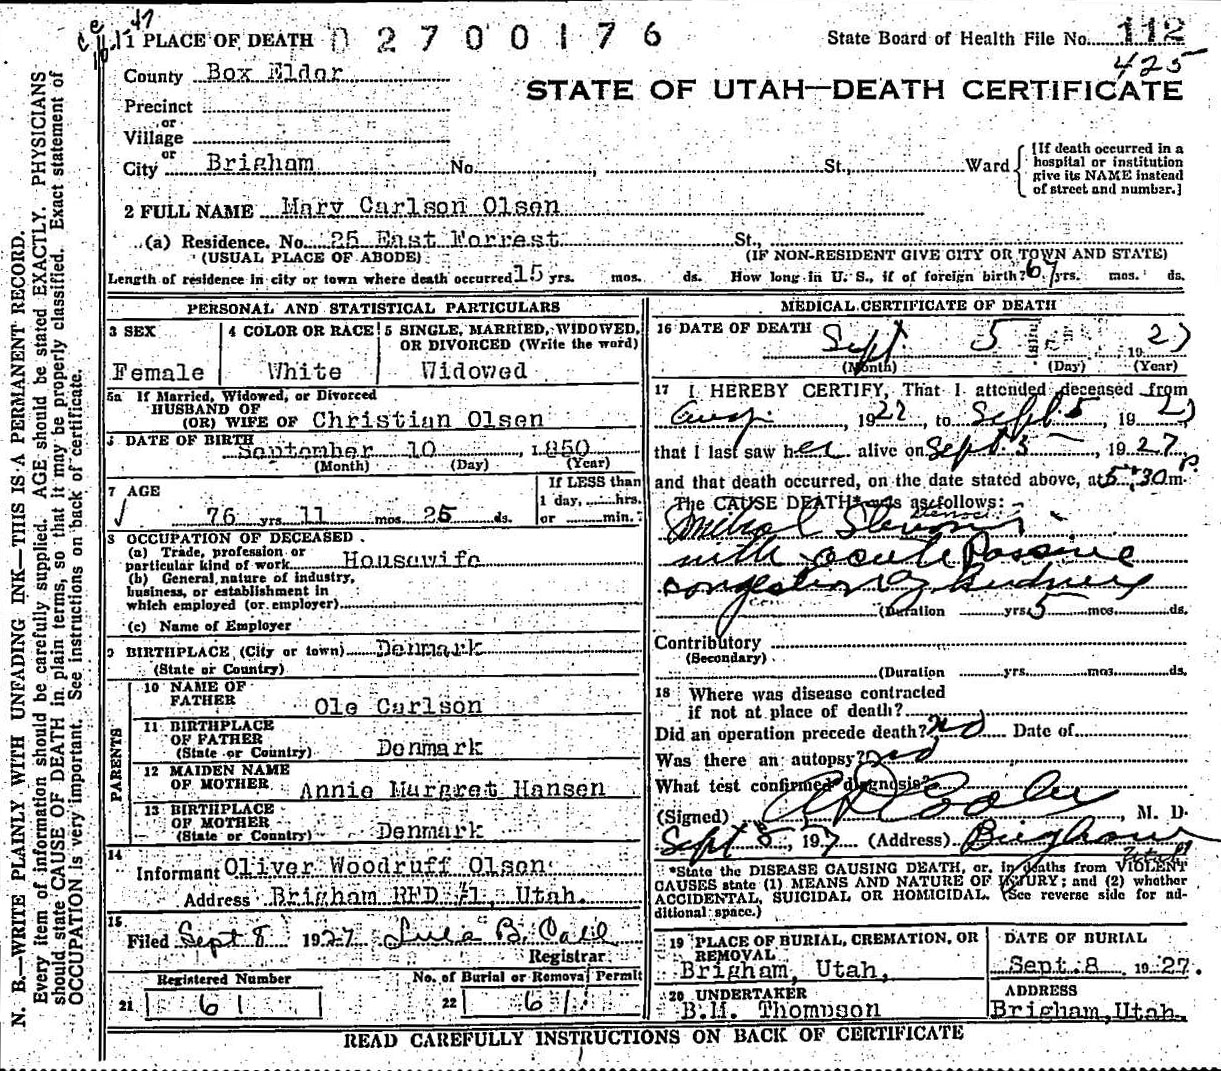 1 PLACE OF DEATH 02700176 State Board of Health File No. 112
425
County Box Elder
STATE OF UTAH—DEATH CERTIFICATE
Precinct
or
Village
or
City Brigham No. , St., Ward
[If death occurred in a
hospital or institution
give its NAME instead
of street and number.]
2 FULL NAME Mary Carlson Olsen
(a) Residence. No. 25 East Forrest St.,
(USUAL PLACE OF ABODE) (IF NON-RESIDENT GIVE CITY OR TOWN AND STATE)
Length of residence in city or town where death occurred 15 yrs. mos. ds. How long in U. S., if of foreign birth? 67 yrs. mos. ds.
PERSONAL AND STATISTICAL PARTICULARS
3 SEX 4 COLOR OR RACE 5 SINGLE, MARRIED, WIDOWED,
OR DIVORCED (Write the word)
Female White Widowed
5a If Married, Widowed, or Divorced
HUSBAND OF
(OR) WIFE OF Christian Olsen
6 DATE OF BIRTH
September 10 , 1850
(Month) (Day) (Year)
7 AGE If LESS than
1 day, hrs.
76 yrs. 11 mos. 25 ds. or min.
8 OCCUPATION OF DECEASED
(a) Trade, profession or
particular kind of work Housewife
(b) General nature of industry,
business, or establishment in
which employed (or employer)
(c) Name of Employer
9 BIRTHPLACE (City or town) Denmark
(State or Country)
PARENTS
10 NAME OF
FATHER Ole Carlson
11 BIRTHPLACE
OF FATHER
(State or Country) Denmark
12 MAIDEN NAME
OF MOTHER Annie Margret Hansen
13 BIRTHPLACE
OF MOTHER
(State or Country) Denmark
14
Informant Oliver Woodruff Olsen
Address Brigham RFD #1, Utah.
15
Filed Sept 8 1927 Lula B.
Registrar
Registered Number No. of Burial or Removal Permit
21 61 22 61
MEDICAL CERTIFICATE OF DEATH
16 DATE OF DEATH Sept. 5 1927
(Month) (Day) (Year)
17 I HEREBY CERTIFY, That I attended deceased from
Aug. , 1922, to Sept 5, 1927
that I last saw her alive on Sept. 5 1927
and that death occurred, on the date stated above, at 5:30 P m.
The CAUSE DEATH* was as follows:
Mitral Stenosis
with acute Passive
congestion of kidneys
(Duration yrs. 5 mos. ds.
Contributory
(Secondary)
(Duration yrs. mos. ds.
18 Where was disease contracted
if not at place of death?
Did an operation precede death? no Date of
Was there an autopsy? no
What test confirmed diagnosis?
(Signed) , M. D.
Sept 8, 1927 (Address) Brigham
Utah
*State the DISEASE CAUSING DEATH, or, in deaths from VIOLENT
CAUSES state (1) MEANS AND NATURE OF INJURY; and (2) whether
ACCIDENTAL, SUICIDAL OR HOMICIDAL. (See reverse side for ad-
ditional space.)
19 PLACE OF BURIAL, CREMATION, OR
REMOVAL
Brigham, Utah,
DATE OF BURIAL
Sept. 8 1927.
20 UNDERTAKER
B.H. Thompson
ADDRESS
Brigham, Utah.
READ CAREFULLY INSTRUCTIONS ON BACK OF CERTIFICATE
N. B.—WRITE PLAINLY WITH UNFADING INK—THIS IS A PERMANENT RECORD.
Every item of information should be carefully supplied. AGE should be stated EXACTLY. PHYSICIANS
should state CAUSE OF DEATH in plain terms, so that it may be properly classified. Exact statement of
OCCUPATION is very important. See instructions on back of certificate.